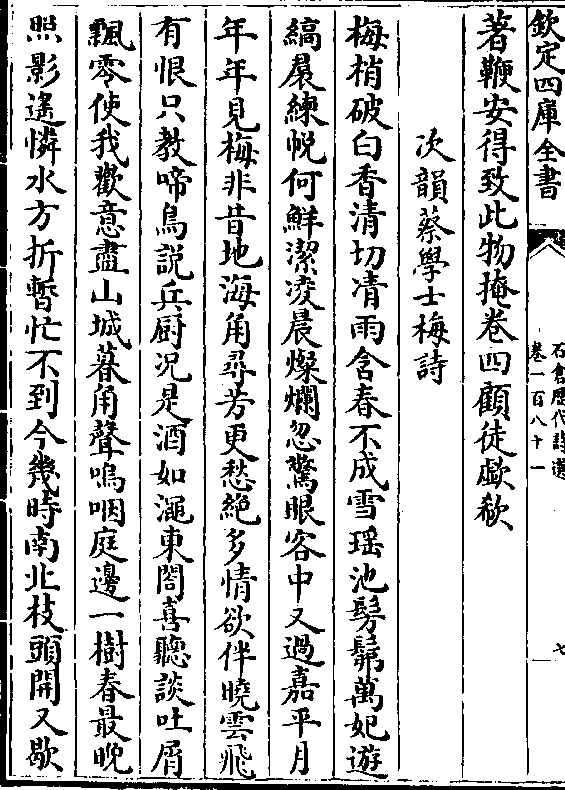 欽定四庫全書
石倉歷代詩選
卷一百八十一
七
著鞭安得致此物掩卷四顧徒歔欷
次韻蔡學士梅詩
梅梢破白香清切凊雨含春不成雪瑶池髣髴萬妃遊
縞裠練帨何鮮潔凌晨燦爛忽驚眼客中又過嘉平月
年年見梅非昔地海角尋芳更愁絶多情欲伴曉雲飛
有恨只教啼鳥說兵厨况是酒如澠東閤喜聽談吐屑
飄零使我歡意盡山城暮角聲嗚咽庭邊一樹春最晩
照影遙憐水方折暫忙不到今幾時南北枝頭開又歇